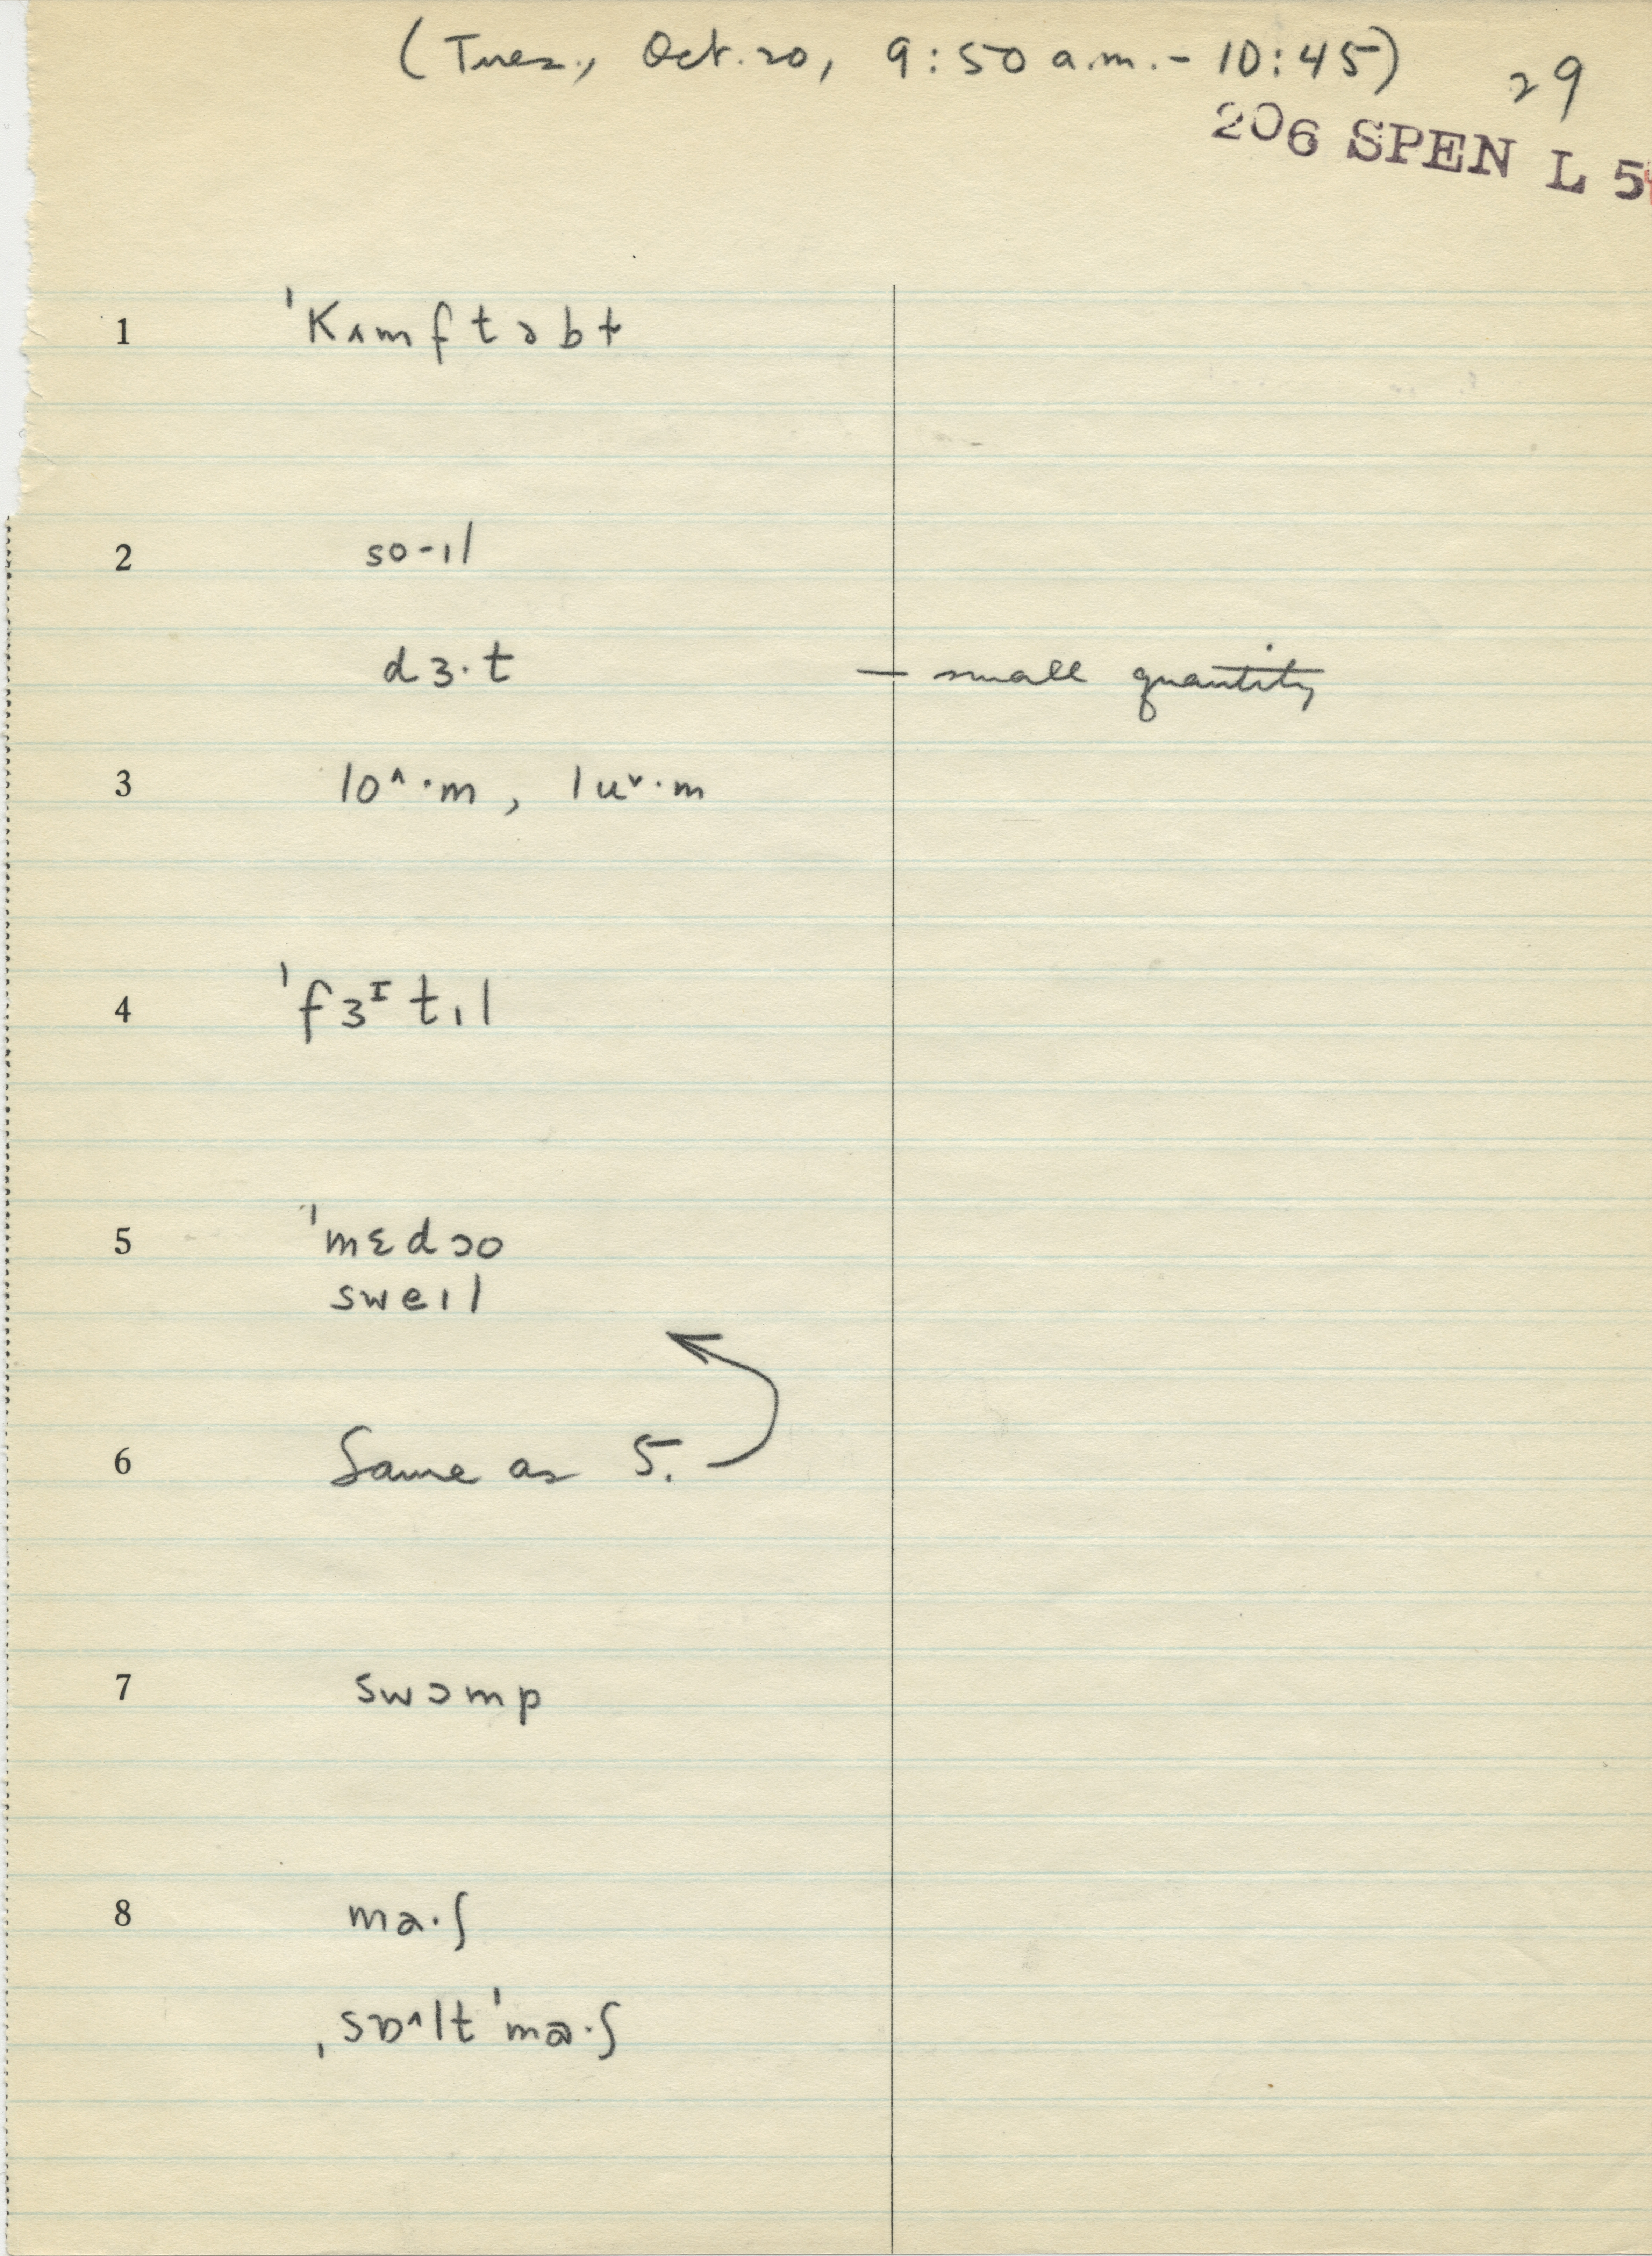 (Tues., Oct. 20, 9:50 a.m. - 10:45) 29
206 SPEN L 5
1 ˈKʌmftəbt
2 sɔ-ɪl
dɜ·t — small quantity
3 lo^·m, luˇ·m
4 ˈfɜᴵtɪl
5 ˈmɛdɔo
sweɪl
6 Same as 5.
7 swɔmp
8 ma·ʃ
ˌsɒ^ltˈma·ʃ